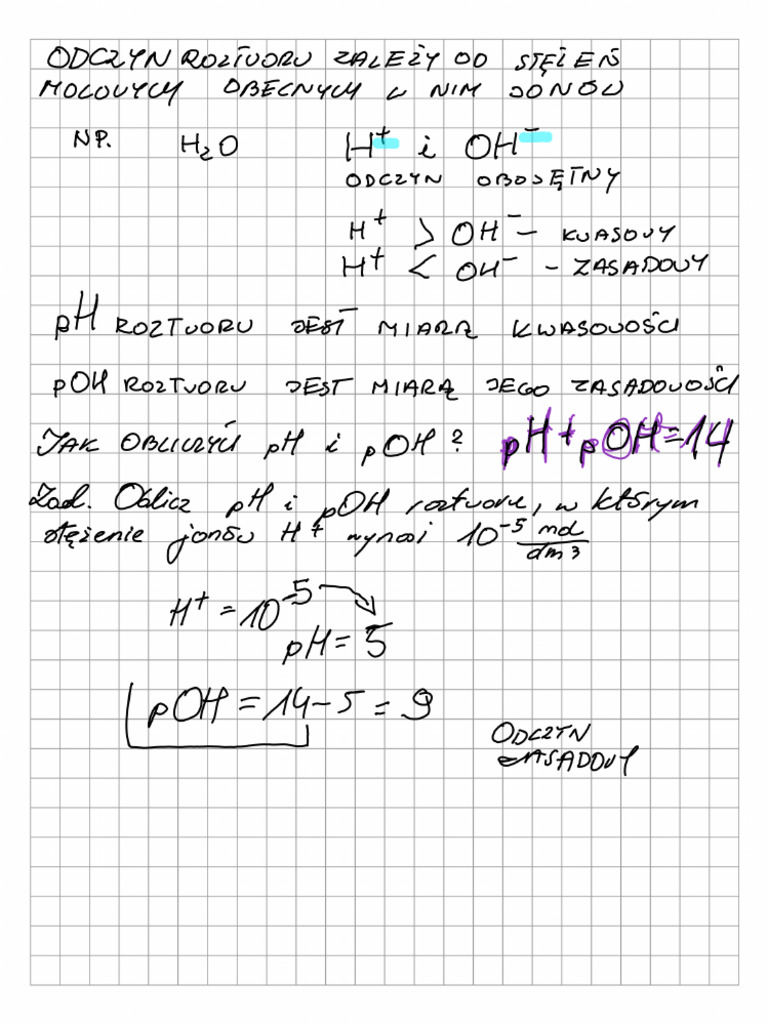 ODCZYN ROZTWORU ZALEŻY OD STĘŻEŃ
MOLOWYCH OBECNYCH W NIM JONÓW
NP. H₂O H⁺ i OH⁻
ODCZYN OBOJĘTNY
H⁺ > OH⁻ – KWASOWY
H⁺ < OH⁻ – ZASADOWY
pH ROZTWORU JEST MIARĄ KWASOWOŚCI
pOH ROZTWORU JEST MIARĄ JEGO ZASADOWOŚCI
JAK OBLICZYĆ pH i pOH? pH + pOH = 14
Zad. Oblicz pH i pOH roztworu, w którym
stężenie jonów H⁺ wynosi 10⁻⁵ mol/dm³
H⁺ = 10⁻⁵
pH = 5
pOH = 14 – 5 = 9
ODCZYN
ZASADOWY